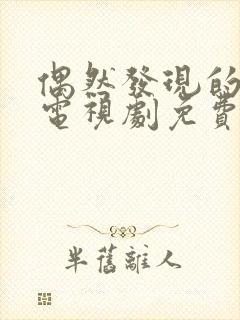 偶然發現的
電視劇免費
半舊離人